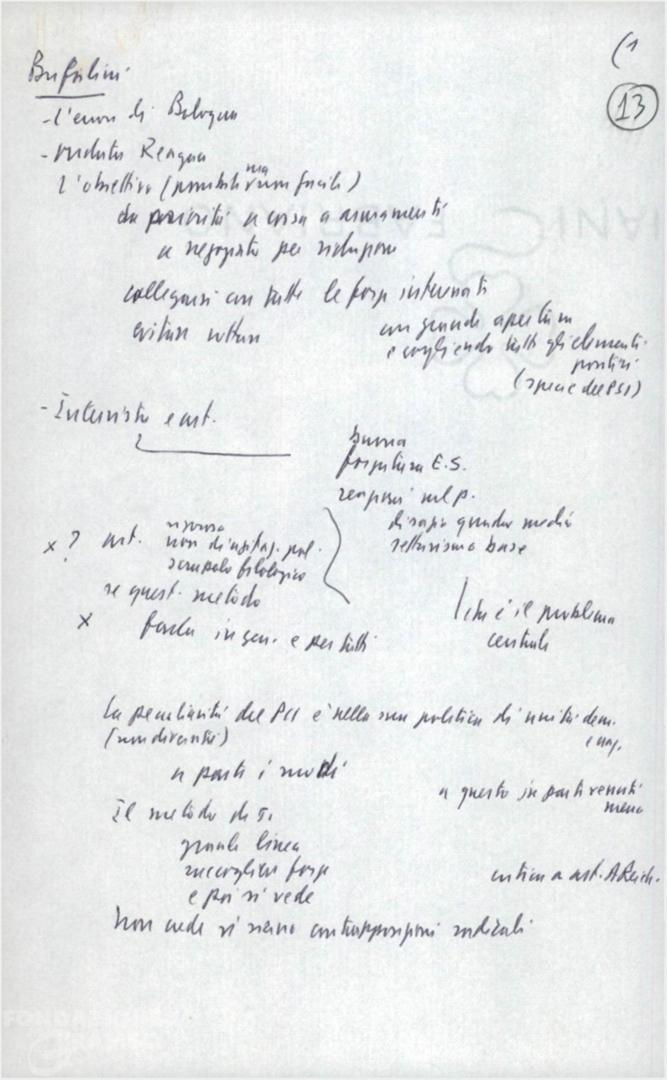 (1
13
Bufalini
- l'errore di Bologna
- venduta Reagan
ma
l'obiettivo (possibile non facile)
da priorità a corsa a armamenti
a negoziato per riduzione
collegarsi con tutte le forze internaz.
evitare rotture
con grande apertura
e cogliendo tutti gli elementi
positivi
(specie del PSI)
- Intervista e art.
buona
forzatura E.S.
reazioni nel p.
disagio quadro medio
settarismo base
x ? art.
non di
scrupolo filologico
se quest. metodo
x
in gen. e per tutti
che è il problema
centrale
La peculiarità del PCI è nella sua politica di unità dem.
e naz.
(non diversità)
a parte i modi
a questo in parte venuti
meno
Il metodo di T.
grande linea
raccogliere forze
e poi si vede
critica a art. A. Reich.
Non vede vi siano contrapposizioni radicali
FONDAZIONE
GRAMSCI
FABRIANO